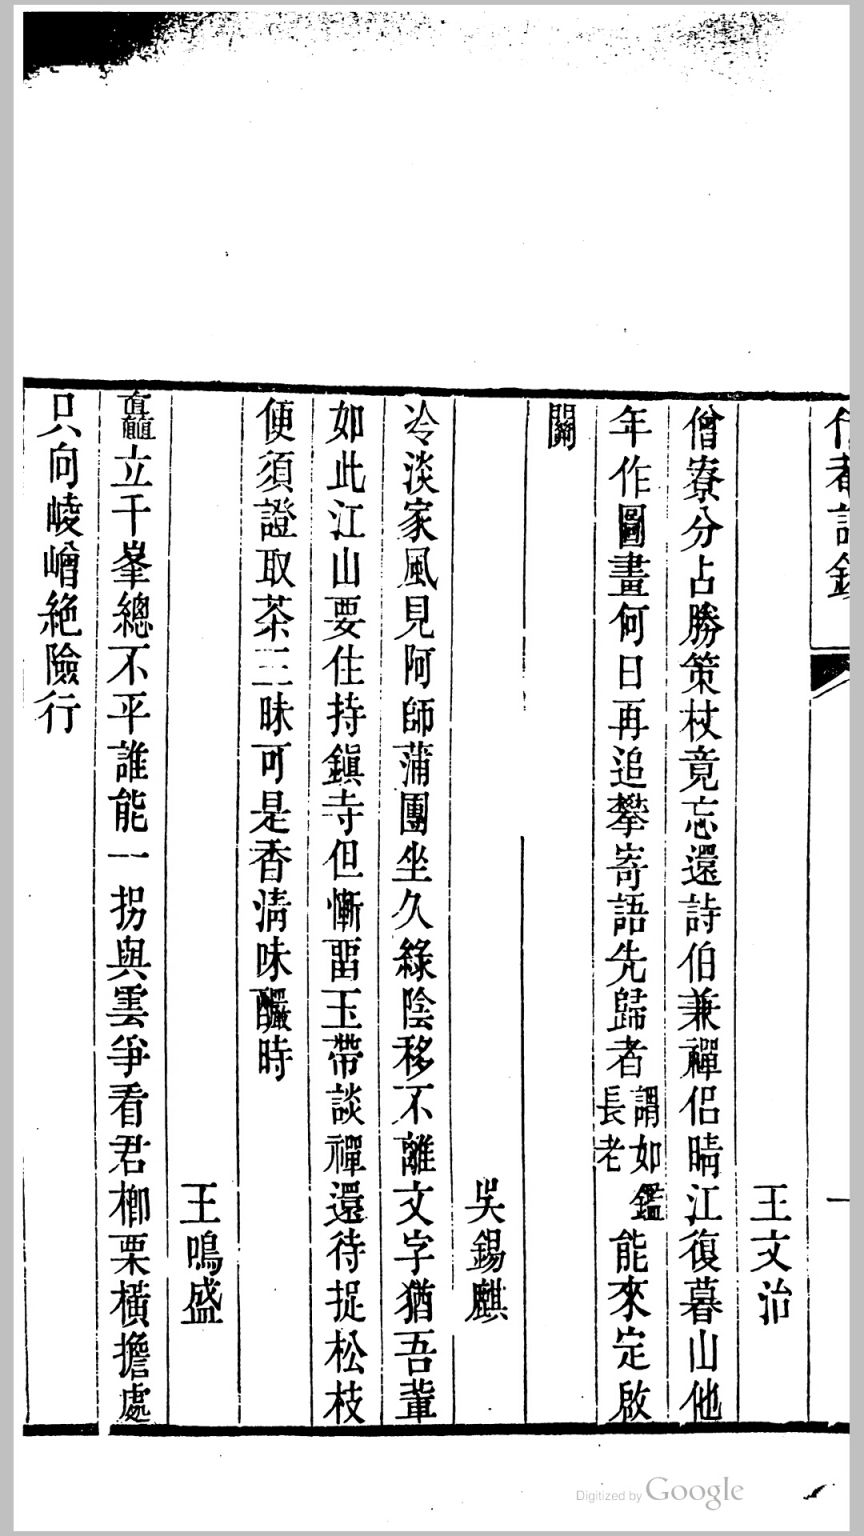 王文治
僧寮分占勝策杖竟忘還詩伯兼禪侣晴江復暮山他
年作圖畫何日再追攀寄語先歸者謂如鑑長老能來定啟
關
吳錫麒
冷淡家風見阿師蒲團坐久綠陰移不離文字猶吾輩
如此江山要住持鎮寺但慚畱玉帶談禪還待捉松枝
便須證取茶三昧可是香淸味釅時
王鳴盛
矗立千峯總不平誰能一拐與雲爭看君楖栗橫擔處
只向崚嶒絶險行
Digitized by Google